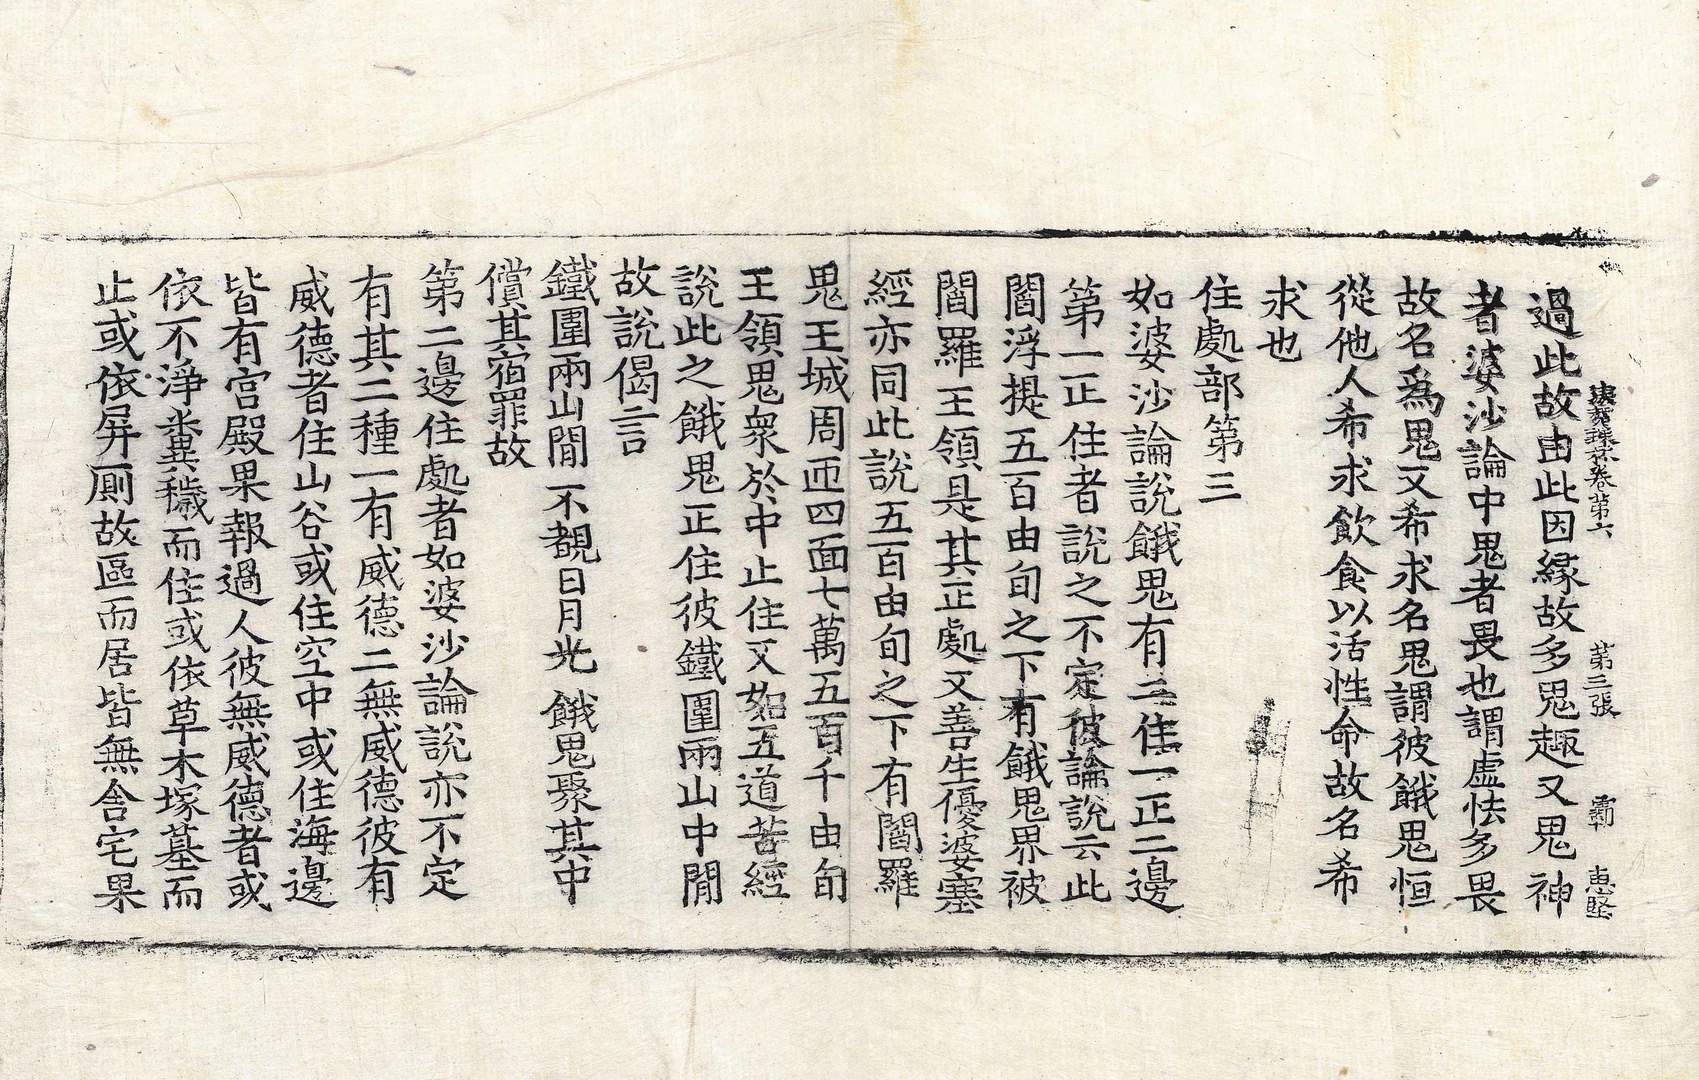 法苑珠林卷第六 第三張 霸 惠堅
過此故由此因縁故多鬼趣又鬼神
者婆沙論中鬼者畏也謂虛怯多畏
故名爲鬼又希求名鬼謂彼餓鬼恒
從他人希求飲食以活性命故名希
求也
住處部第三
如婆沙論說餓鬼有二住一正二邊
第一正住者說之不定彼論說云此
閻浮提五百由旬之下有餓鬼界被
閻羅王領是其正處又善生優婆塞
經亦同此說五百由旬之下有閻羅
鬼王城周匝四面七萬五百千由旬
王領鬼衆於中止住又如五道苦經
說此之餓鬼正住彼鐵圍兩山中閒
故說偈言
鐵圍兩山閒 不覩日月光 餓鬼聚其中
償其宿罪故
第二邊住處者如婆沙論說亦不定
有其二種一有威德二無威德彼有
威德者住山谷或住空中或住海邊
皆有宮殿果報過人彼無威德者或
依不淨糞穢而住或依草木塚墓而
止或依屏厠故區而居皆無舍宅果